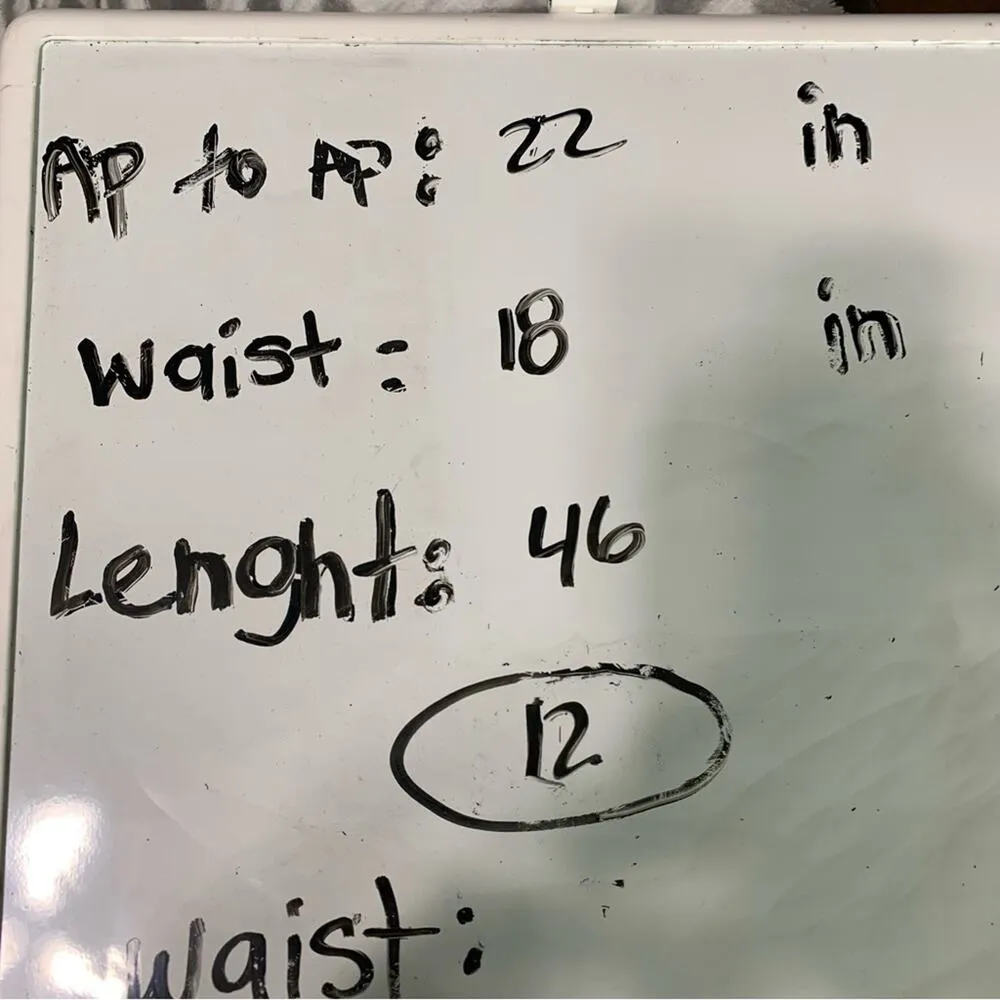 AP to AP: 22 in
Waist: 18 in
Lenght: 46
12
Waist: